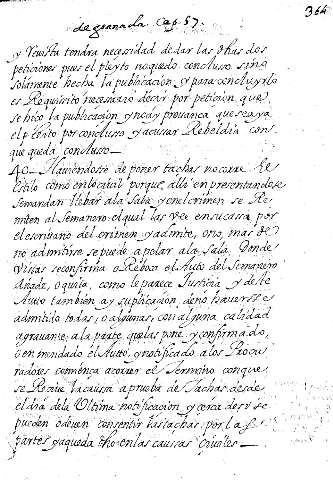 de granada Cap. 57.
364
y Revista tendra necesidad de dar las dhas dos
peticiones pues el pleyto no quedo concluso sino
solamente hecha la publicacion, y para concluyrlo
es Requisito necesario decir por peticion que
se hico la publicacion, y no ay provança que se aya
el pleito por concluso y acusar Rebeldia con
que queda concluso
40 - Haviendose de poner tachas no corre el
Estilo como en lo civil porque alli en presentandose
se mandan llebar a la sala y en el crimen se Re
miten al semanero el qual las vee en su casa por
el escrivano del crimen y admite, o no, mas de
no admitirse se puede apelar a la sala Donde
vistas se confirma o Reboca el Auto del semanero
añade, o quita, como le parece Justicia y deste
Auto tambien ay suplicacion de no haverse
admitido todas, o algunas, con alguna calidad
agravante; a la parte que las pone, y confirmado,
o enmendado el Auto, y notificado a los Procu
radores comença a correr el Termino con que
se Recive la causa a prueba de Tachas desde
el dia de la Ultima notificacion y cerca de si se
pueden o deven consentir las tachas por las
partes ya queda dho en las causas Civiles